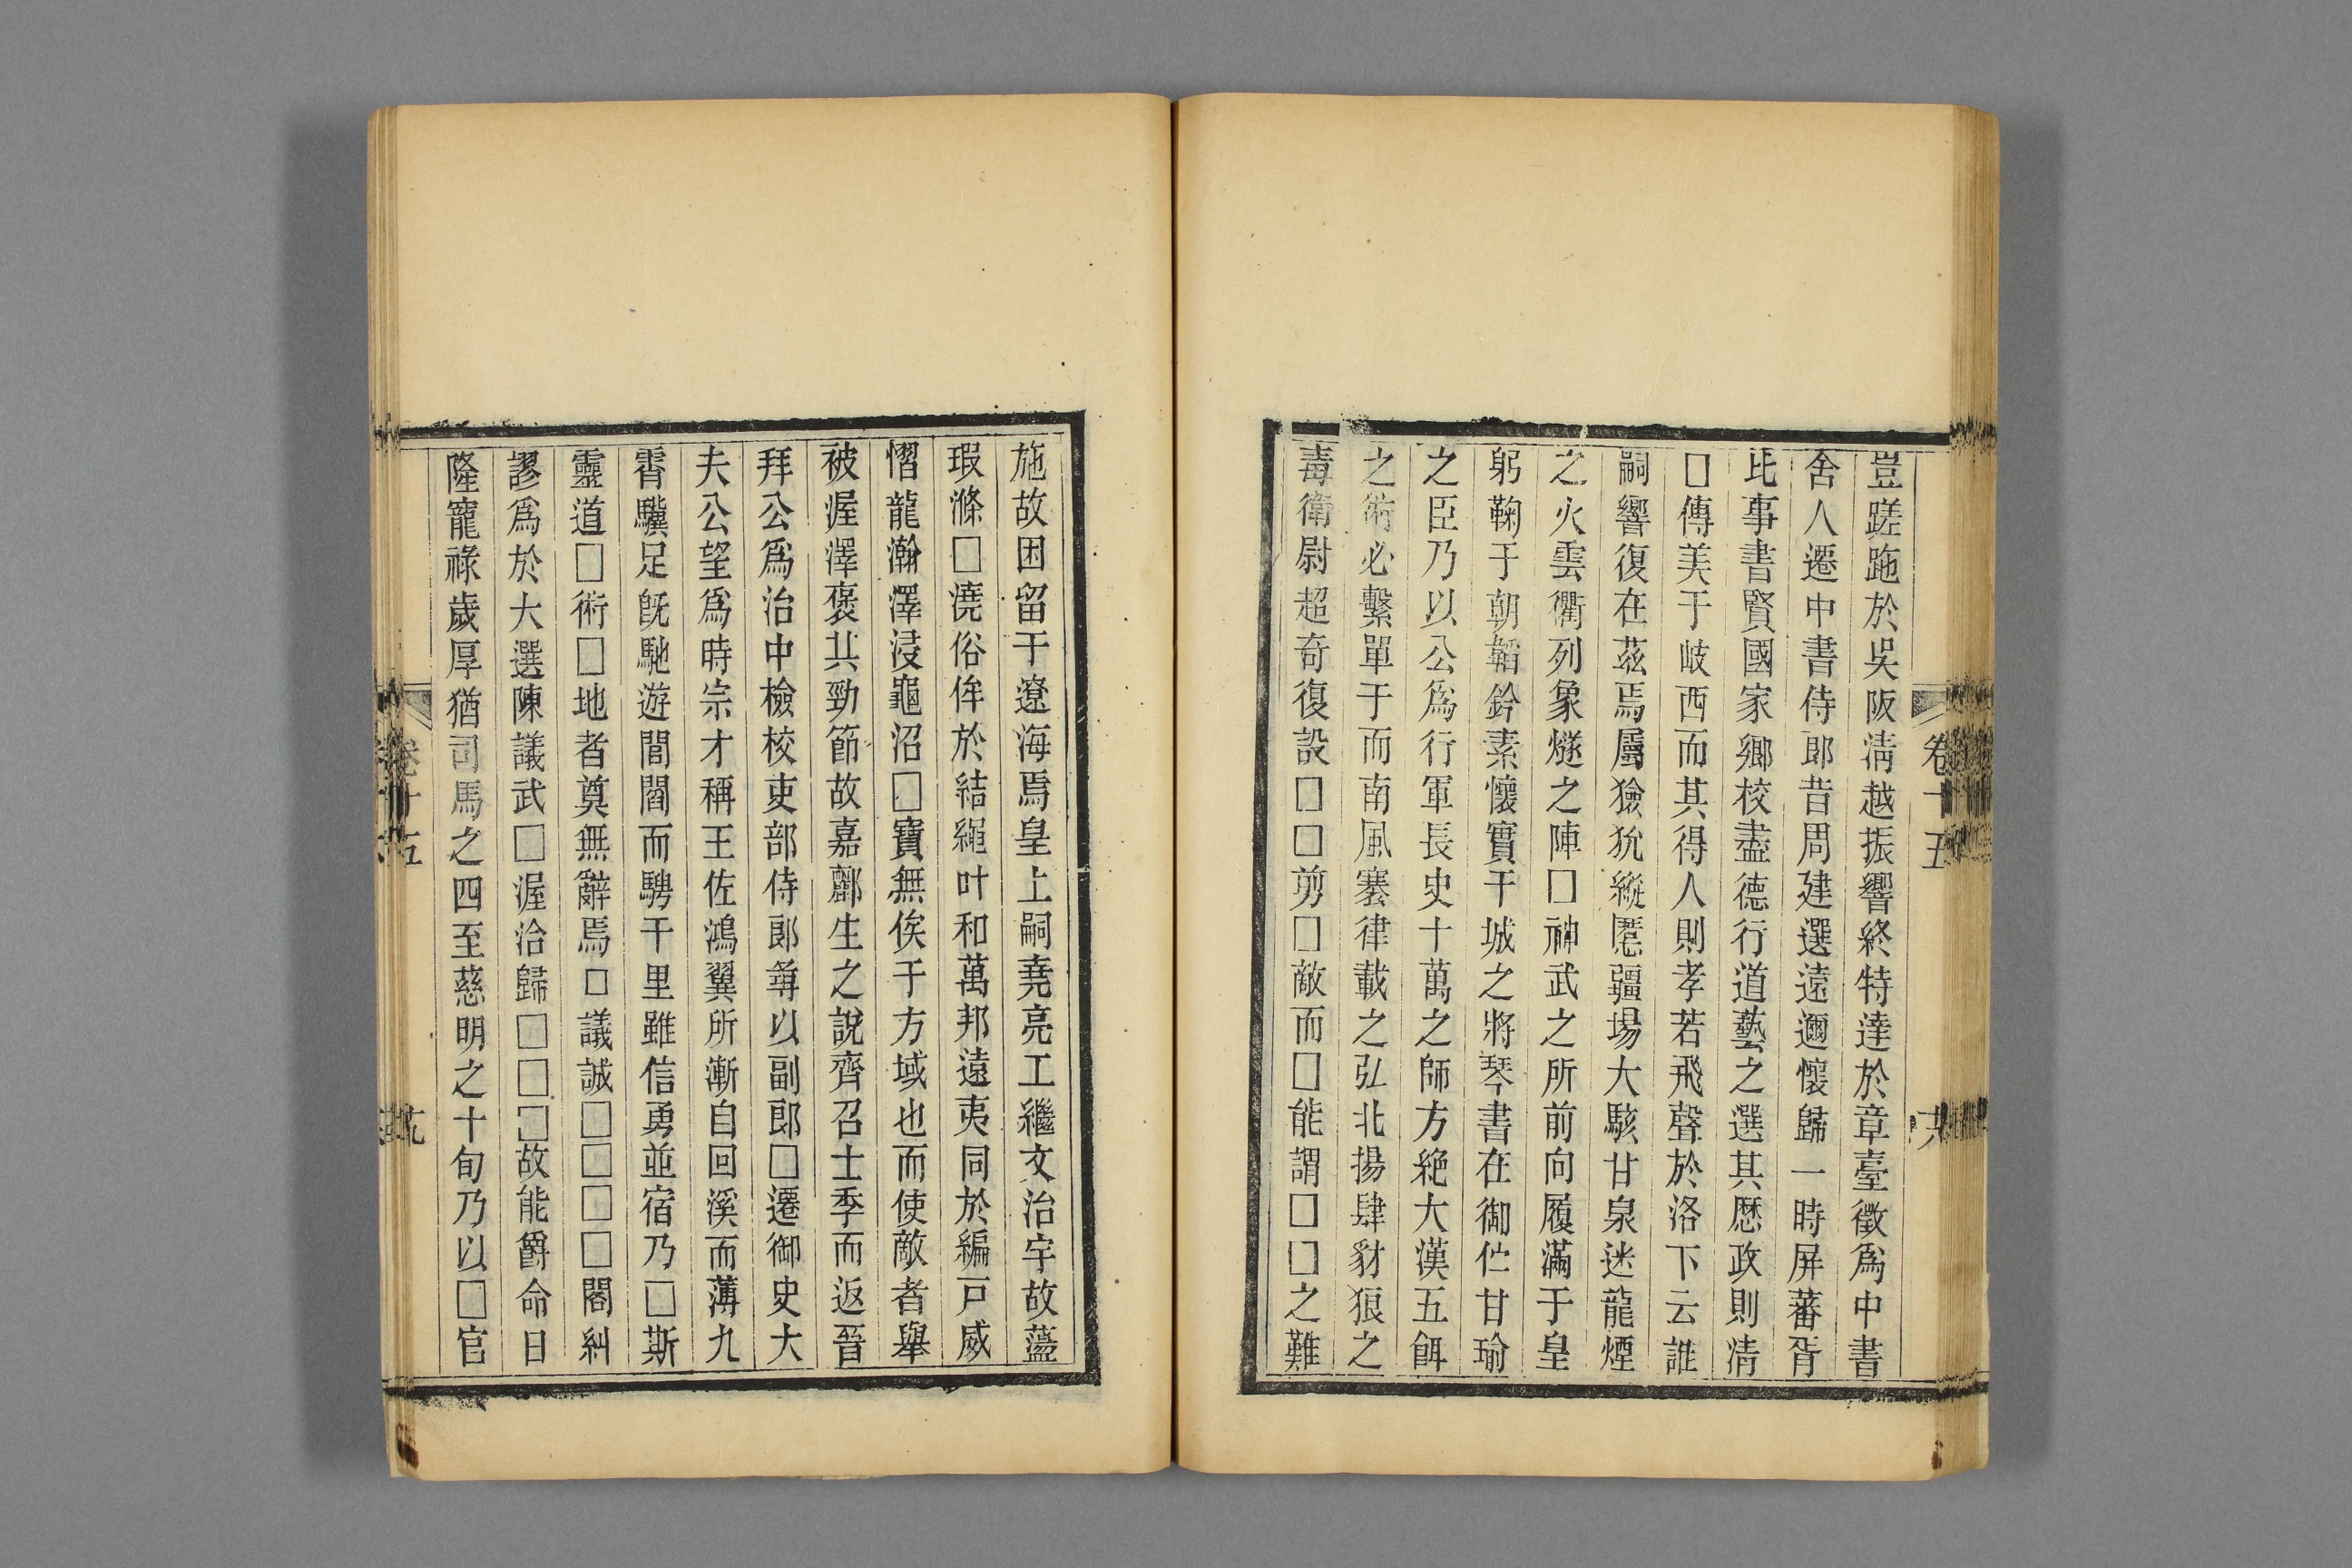 豈蹉跎於吳阪淸越振響終特達於章臺徵爲中書
舍人遷中書侍郎昔周建選遠邇懷歸一時屏蕃胥
比事書賢國家鄉校盡德行道藝之選其歷政則淸
□傳美于岐西而其得人則孝若飛聲於洛下云誰
嗣響復在茲焉屬獫狁縱慝疆場大駭甘泉迷龍煙
之火雲衢列象燧之陣□神武之所前向履滿于皇
躬鞠于朝韜鈐素懷實干城之將琴書在御伫甘瑜
之臣乃以公爲行軍長史十萬之師方絶大漢五餌
之術必繫單于而南風蹇律載之弘北揚肆豺狼之
毒衛尉超奇復設□□剪□敵而□能謂□□之難
卷十五
六
施故困留干遼海焉皇上嗣堯亮工繼文治宇故蕩
瑕滌□澆俗侔於結繩叶和萬邦遠夷同於編戶威
慴龍瀚澤浸龜沼□寶無俟于方域也而使敵者舉
被渥澤褒其勁節故嘉酈生之說齊召士季而返晉
拜公爲治中檢校吏部侍郎尋以副郎□遷御史大
夫公望爲時宗才稱王佐鴻翼所漸自回溪而薄九
霄驥足旣馳遊閶閻而騁千里雖信勇並宿乃□斯
靈道□術□地者奠無辭焉□議誠□□□□閣糾
謬爲於大選陳議武□渥洽歸□□□故能爵命日
隆寵祿歲厚猶司馬之四至慈明之十旬乃以□官
卷十五